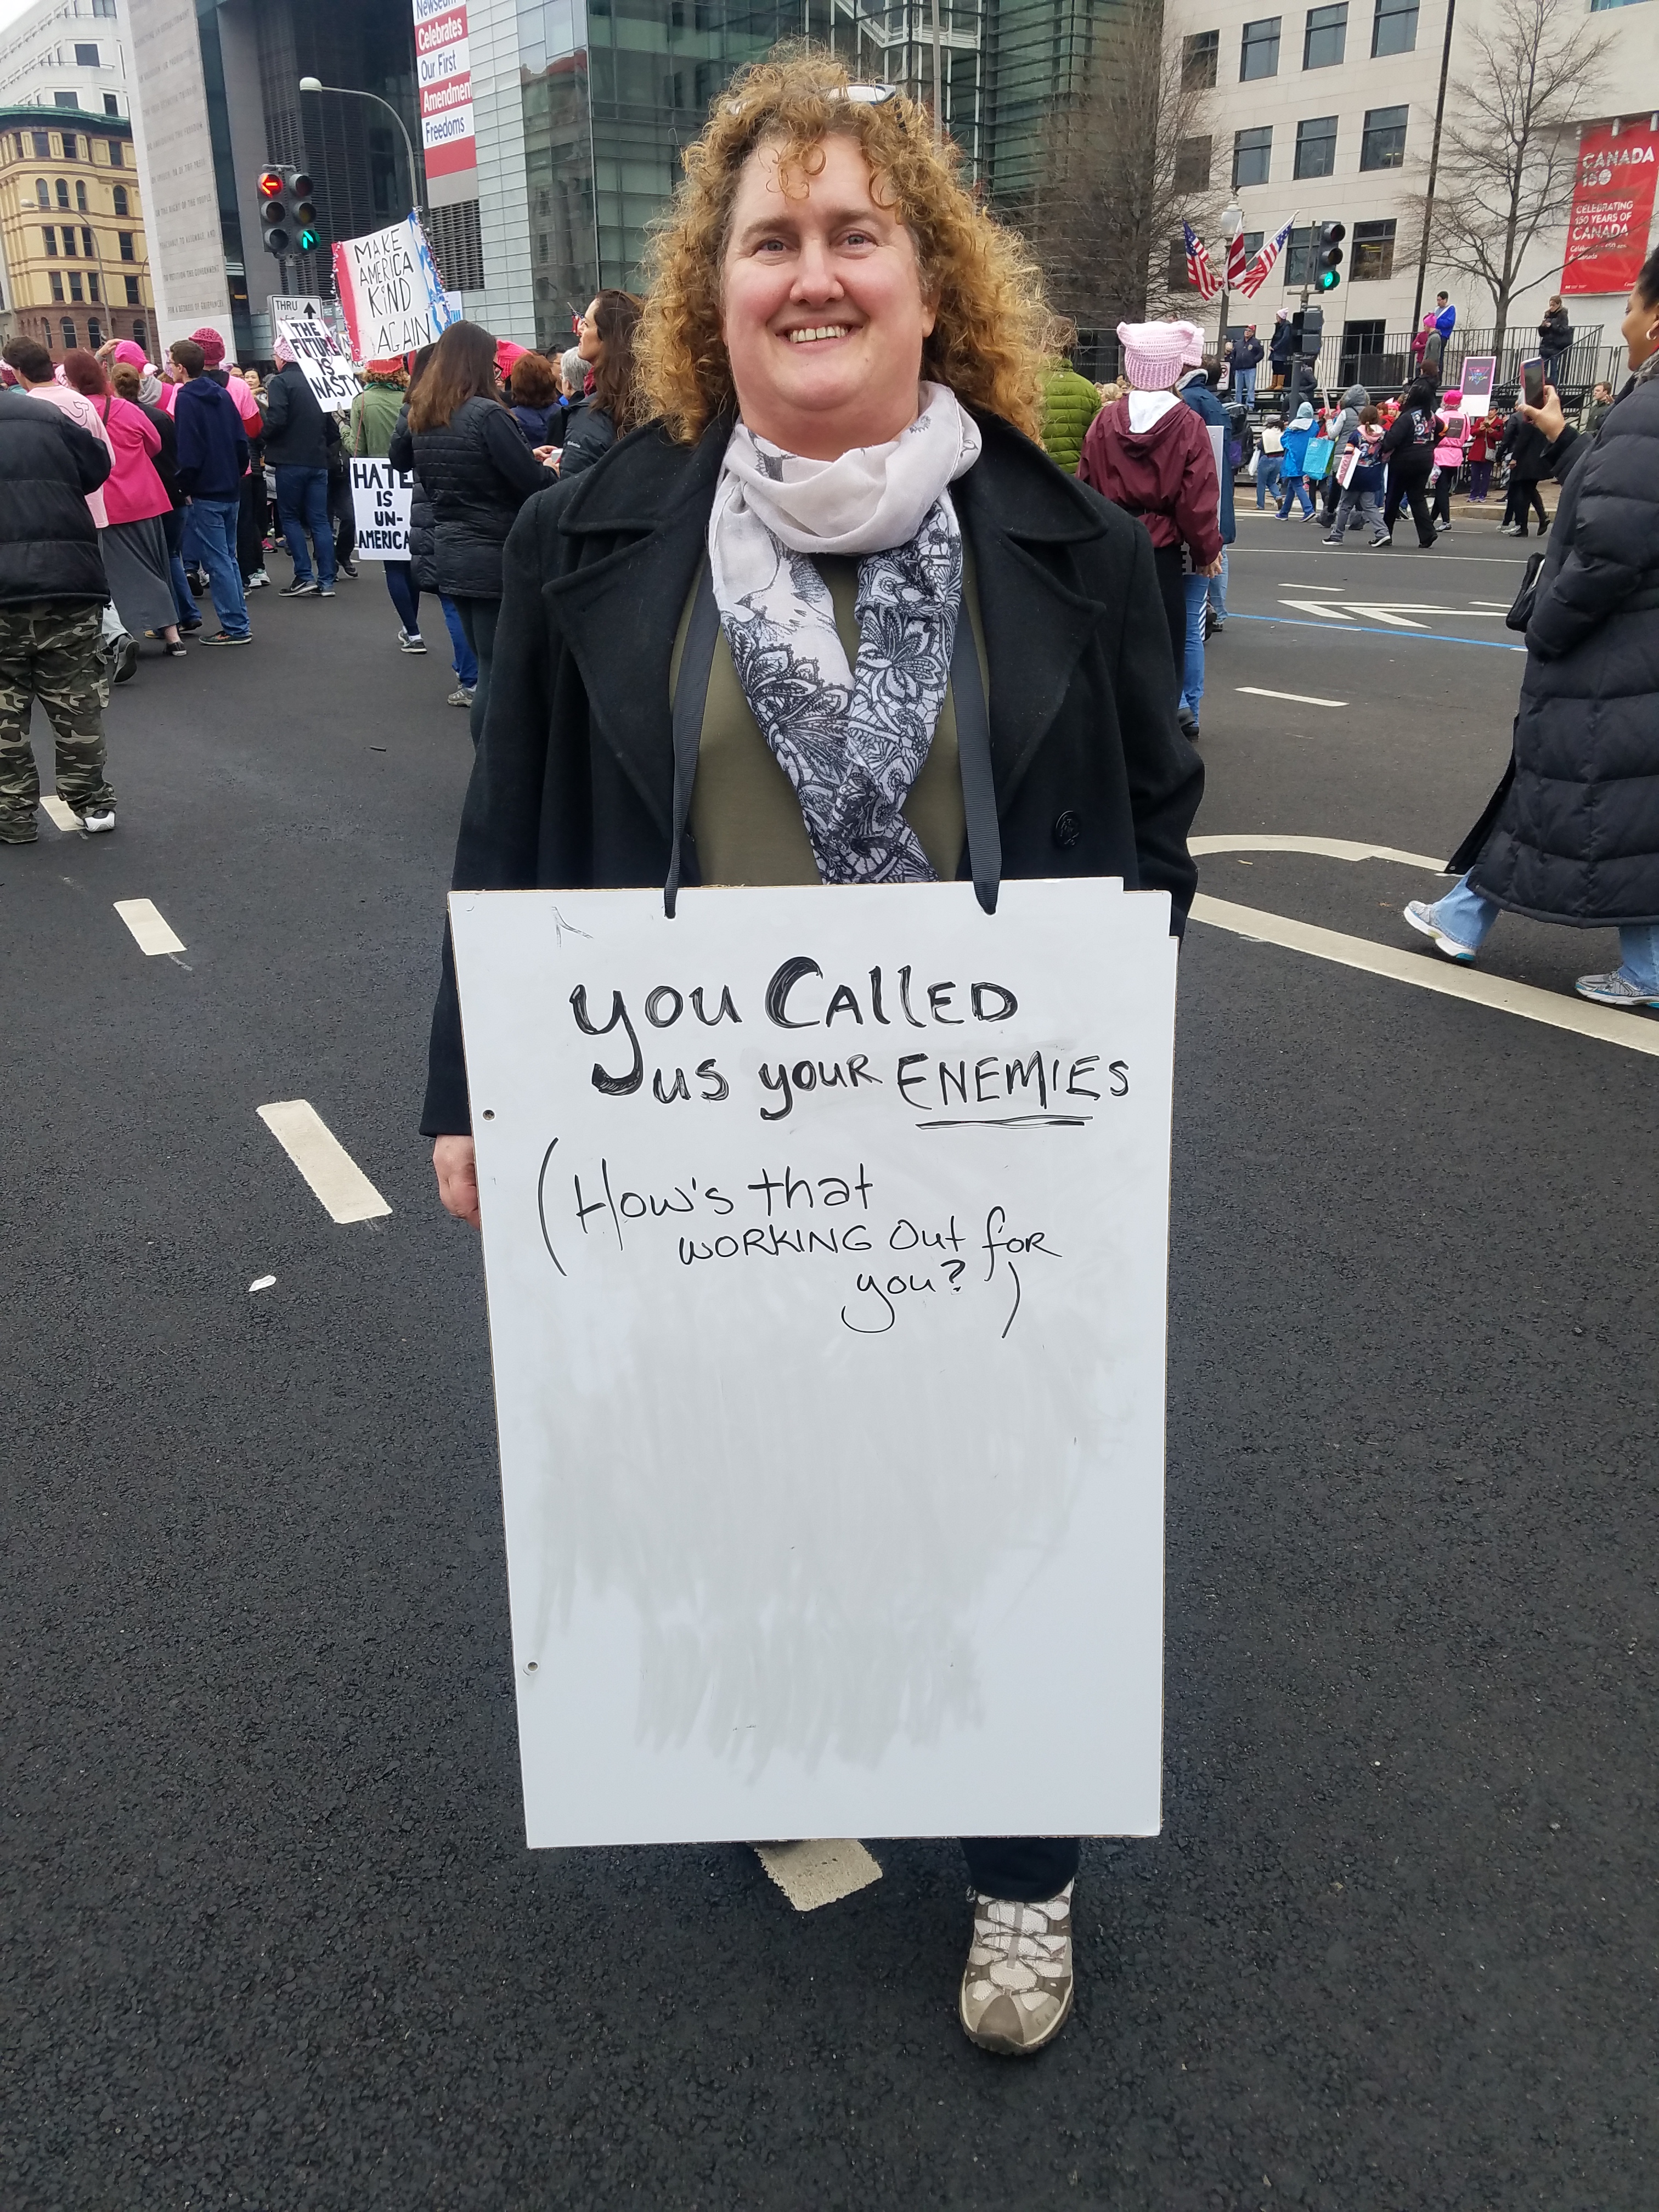 Newseum
Celebrates
Our First
Amendmen
Freedoms
MAKE
AMERICA
KIND
AGAIN
THRU
THE
FUTURE
IS
NASTY
HATE
IS
UN-
AMERICA
CANADA
150
CELEBRATING
150 YEARS OF
CANADA
you CAllED
us your ENEMIES
(How's that
WORKING Out foR
you?)